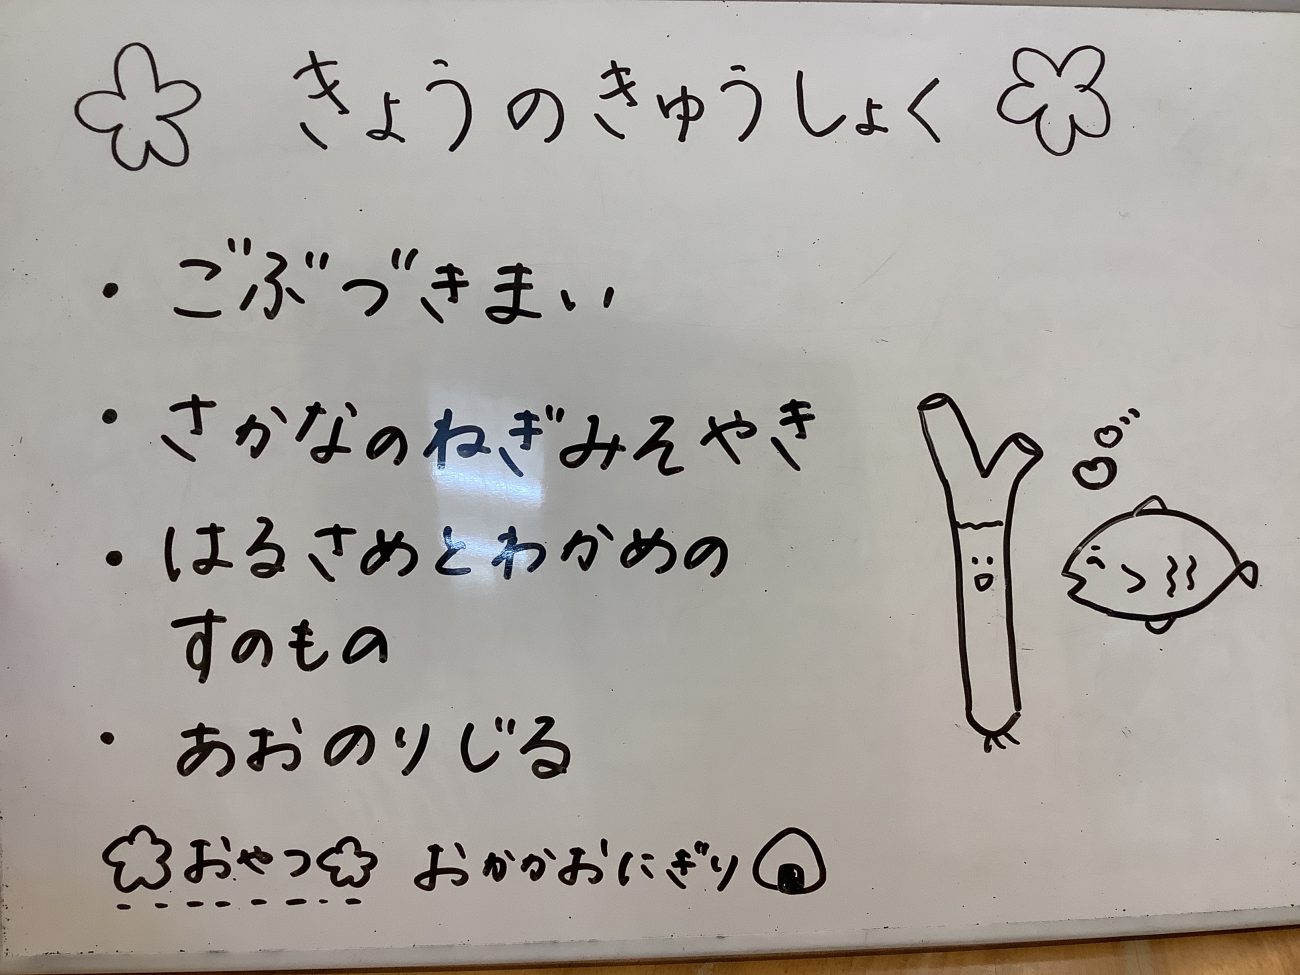 きょうのきゅうしょく
・ごぶづきまい
・さかなのねぎみそやき
・はるさめとわかめの
すのもの
・あおのりじる
おやつ おかかおにぎり